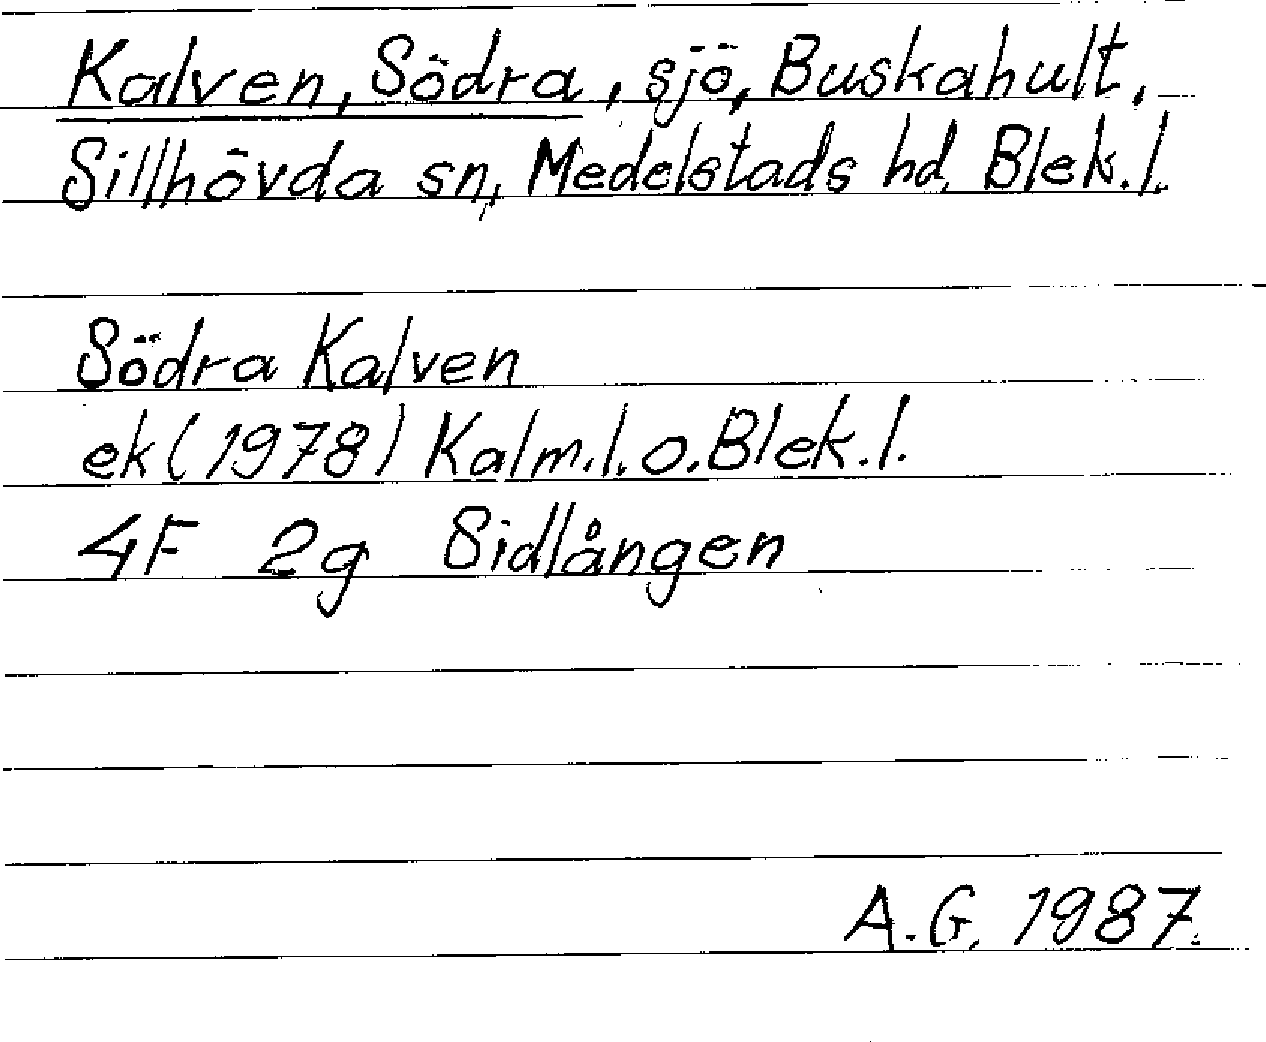 Kalven, Södra, sjö, Buskahult,
Sillhövda sn, Medelstads hd. Blek.l.
Södra Kalven
ek (1978) Kalm.l.o.Blek.l.
4F 2g Sidlången
A.G. 1987.